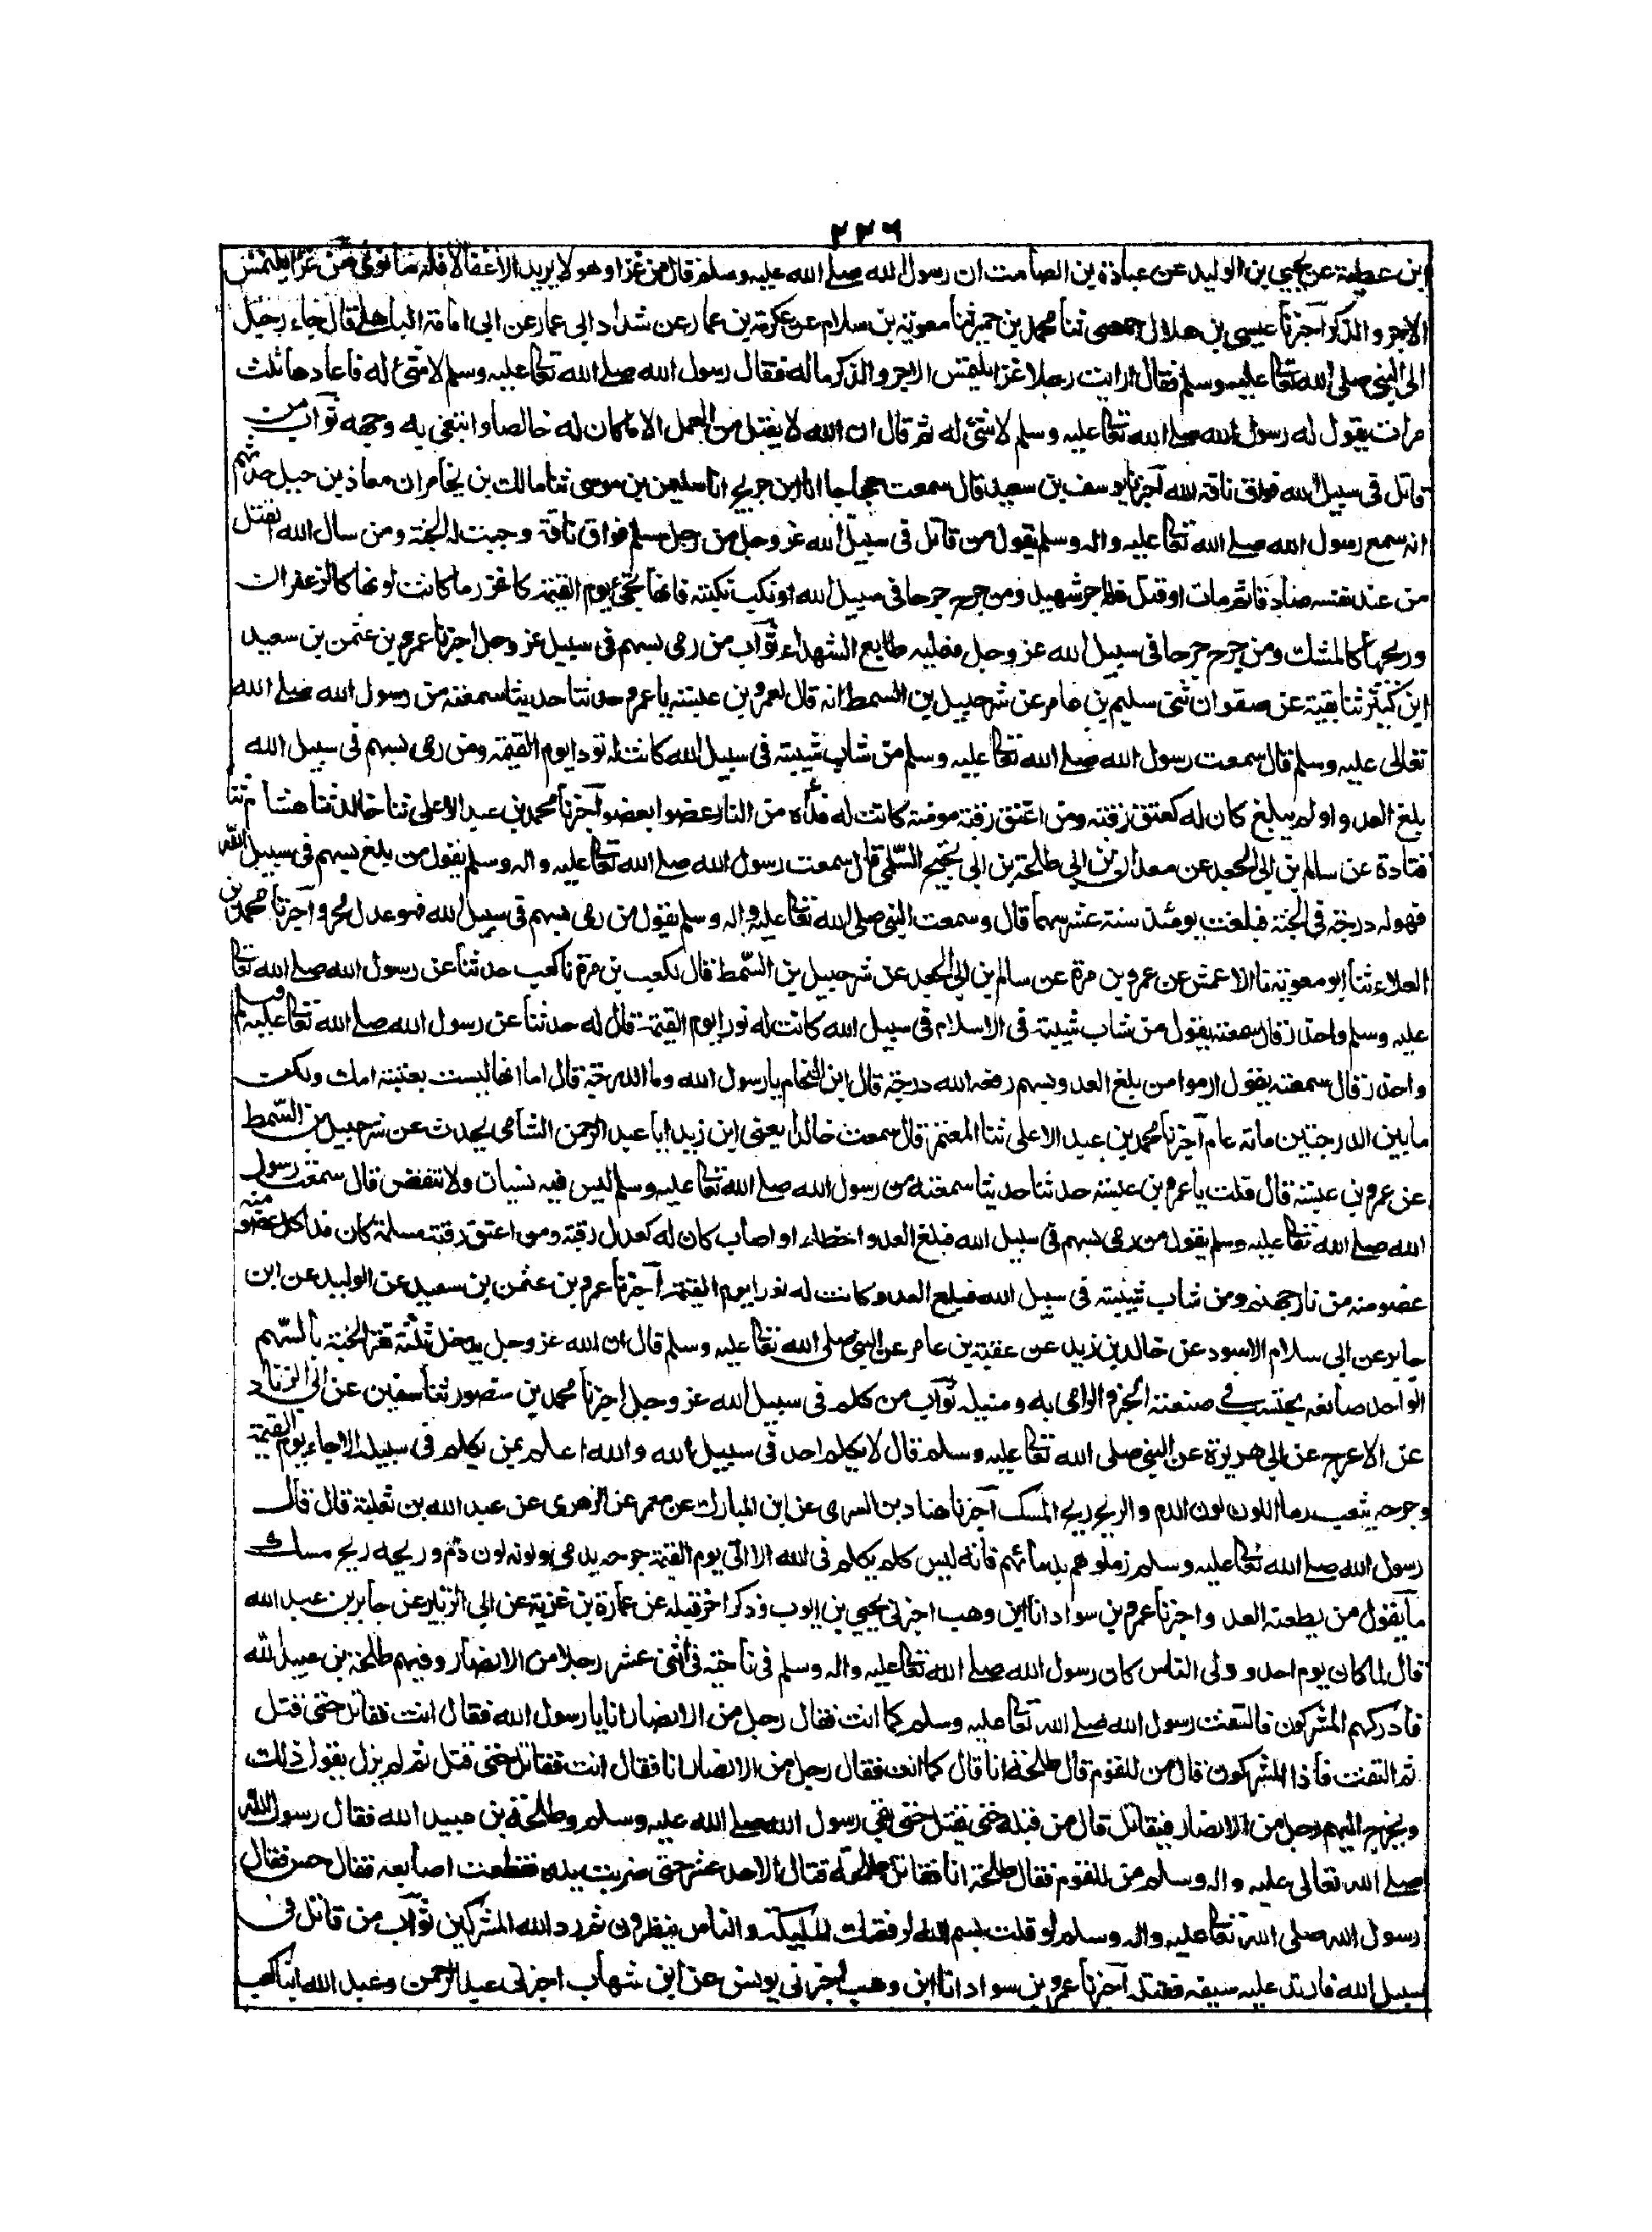 ٢٢٦
ابن عطية عن يحيي بن الوليد عن عبادة بن الصامت ان رسول الله صلے الله عليه وسلم قال من غزا وهو لا يريد الا عقالا فله ما نوى من غزا يلتمس
الاجر والذكر آخبرنا عيسى بن هلال حمصى ثنا محمد بن حمير ثنا معوية بن سلام عن عكرمة بن عمار عن شداد ابى عمار عن ابي امامة الباهلے قال جاء رجل
الى النبى صلى الله تعا عليه وسلم فقال ارايت رجلا غزا يلتمس الاجر والذكر ماله فقال رسول الله صلے الله تعا عليه وسلم لا شئ له فاعادها ثلث
مرات يقول له رسول الله صلے الله تعا عليه وسلم لا شئ له ثم قال ان الله لا يقبل من العمل الا ما كان له خالصا وابتغى به وجهه ثوآب من
قاتل فى سبيل الله فواق ناقة الله آخبرنا يوسف بن سعيد قال سمعت حجاجا انا ابن جريج انا سليمن بن موسى ثنا مالك بن يخامر ان معاذ بن جبل حدثهم
انه سمع رسول الله صلے الله تعا عليه واله وسلم يقول من قاتل فى سبيل الله عز وجل من رجل مسلم فواق ناقة وجبت له الجنة ومن سال الله القتل
من عند نفسه صادقا ثم مات او قتل فله اجر شهيد ومن جرح جرحا فى سبيل الله او نكب نكبة فانها تجئ يوم القيمة كاغزر ما كانت لونها كالزعفران
وريحها كالمسك ومن جرح جرحا فى سبيل الله عز وجل فعليه طابع الشهداء ثوآب من رمى بسهم فى سبيل عز وجل اخبرنا عمرو بن عثمن بن سعيد
ابن كثير ثنا بقية عن صفوان ثنى سليم بن عامر عن شرحبيل بن السمط انه قال لعمرو بن عبسة يا عمرو حدثنا حديثا سمعته من رسول الله صلے الله
تعالى عليه وسلم قال سمعت رسول الله صلے الله تعا عليه وسلم من شاب شيبة فى سبيل الله كانت له نورا يوم القيمة ومن رمى بسهم فى سبيل الله
بلغ العدو او لم يبلغ كان له كعتق رقبة ومن اعتق رقبة مومنة كانت له فداءه من النار عضوا بعضو آخبرنا محمد بن عبد الاعلى ثنا خالد ثنا هشام ثنا
قتادة عن سالم بن ابى الجعد عن معدان بن ابي طلحة بن ابى نجيح السّلمى قال سمعت رسول الله صلے الله تعا عليه واله وسلم يقول من بلغ بسهم فى سبيل الله
فهو له درجة فى الجنة فبلغت يومئذ ستة عشر سهما قال وسمعت النبى صلى الله تعا عليه واله وسلم يقول من رمى بسهم فى سبيل الله فهو عدل محرر آخبرنا محمد بن
العلاء ثنا ابو معوية نا الاعمش عن عمرو بن مرة عن سالم بن ابى الجعد عن شرحبيل بن السّمط قال لكعب بن مرة يا كعب حدثنا عن رسول الله صلے الله تعا
عليه وسلم واحذر قال سمعته يقول من شاب شيبة فى الاسلام فى سبيل الله كانت له نورا يوم القيمة قال له حدثنا عن رسول الله صلے الله تعا عليه وسلم
واحذر قال سمعته يقول ارموا من بلغ العدو بسهم رفعه الله درجة قال ابن النحام يا رسول الله وما الدرجة قال اما انها ليست بعتبة امك ولكن
ما بين الدرجتين مائة عام آخبرنا محمد بن عبد الاعلى ثنا المعتمر قال سمعت خالدا يعنى ابن زيد ابا عبد الرحمن الشامى يحدث عن شرحبيل بن السّمط
عن عمرو بن عبسة قال قلت يا عمرو بن عبسة حدثنا حديثا سمعته من رسول الله صلے الله تعا عليه وسلم ليس فيه نسيان ولا تنقص قال سمعت رسول
الله صلے الله تعا عليه وسلم يقول من رمى بسهم فى سبيل الله فبلغ العدو اخطاء او اصاب كان له كعدل رقبة ومن اعتق رقبة مسلمة كان فداء كل عضو منه
عضو منه من نار جهنم ومن شاب شيبة فى سبيل الله فبلغ العدو كانت له نورا يوم القيمة آخبرنا عمرو بن عثمن بن سعيد عن الوليد عن ابن
جابر عن ابي سلام الاسود عن خالد بن زيد عن عقبة بن عامر عن النبى صلى الله تعا عليه وسلم قال ان الله عز وجل يدخل ثلثة نفر الجنة بالسّهم
الواحد صانعه يحتسب فے صنعته الخير والرامى به ومنبله ثوآب من كلم فى سبيل الله عز وجل اخبرنا محمد بن منصور ثنا سفين عن ابى الزناد
عن الاعرج عن ابى هريرة عن النبى صلى الله تعا عليه وسلم قال لا يكلم احد فى سبيل الله والله اعلم بمن يكلم فى سبيله الا جاء يوم القيمة
وجرحه يثعب دما اللون لون الدم والريح ريح المسك آخبرنا هناد بن السرى عن ابن المبارك عن معمر عن الزهرى عن عبد الله بن ثعلبة قال قال
رسول الله صلے الله تعا عليه وسلم زملوهم بدمائهم فانه ليس كلم يكلم فى الله الا اتى يوم القيمة جرحه يدمى لونه لون دم وريحه ريح مسك
ما يقول من يطعنه العدو اخبرنا عمرو بن سواد انا ابن وهب اخبرنى يحيى بن ايوب وذكر اخر قبله عن عمارة بن غزية عن ابي الزبير عن جابر بن عبد الله
قال لما كان يوم احد وولى الناس كان رسول الله صلے الله تعا عليه واله وسلم فى ناحية فى اثنى عشر رجلا من الانصار وفيهم طلحة بن عبيد الله
فادركهم المشركون فالتفت رسول الله صلے الله تعا عليه وسلم كما انت فقال رجل من الانصار انا يا رسول الله فقال انت فقاتل حتى قتل
ثم التفت فاذا المشركون قال من للقوم قال طلحة انا قال كما انت فقال رجل من الانصار انا فقال انت فقاتل حتى قتل ثم لم يزل يقول ذلك
ويخرج اليهم رجل من الانصار فيقاتل قتال من قبله حتى يقتل حتى بقى رسول الله صلے الله عليه وسلم وطلحة بن عبيد الله فقال رسول الله
صلے الله تعالى عليه واله وسلم من للقوم فقال طلحة انا فقاتل طلحة قتال الاحد عشر حتى ضربت يده فقطعت اصابعه فقال حس فقال
رسول الله صلى الله تعا عليه واله وسلم لو قلت بسم الله لرفعتك المليكة والناس ينظرون ثم رد الله المشركين ثوآب من قاتل فى
سبيل الله فارتد عليه سيفه فقتله آخبرنا عمرو بن سواد انا ابن وهب اخبرنى يونس عن ابن شهاب اخبرنى عبد الرحمن وعبد الله ابنا كعب